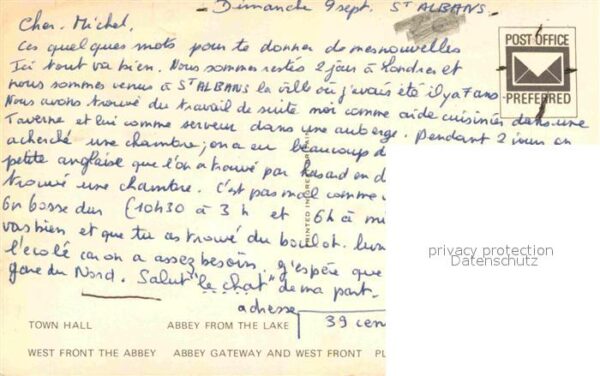 Dimanche 9 sept. ST ALBANS.
Cher Michel.
Ces quelques mots pour te donner de mes nouvelles
Ici tout va bien. Nous sommes restés 2 jours à Londres et
nous sommes venus à ST ALBANS la ville où j'avais été il y a 7 ans.
Nous avons trouvé du travail de suite moi comme aide cuisinier dans une
Taverne et lui comme serveur dans une auberge. Pendant 2 jours on
a cherché une chambre; on a eu beaucoup d
petite anglaise que l'on a trouvé par hasard en d
trouvé une chambre. C'est pas mal comme
On bosse dur (10h30 à 3h et 6h à mi
vas bien et que tu as trouvé du boulot.
l'école car on a assez besoin. J'espère que
gare du Nord. Salut "le chat" de ma part.
adresse
39 cen
POST OFFICE
PREFERRED
PRINTED IN
privacy protection
Datenschutz
TOWN HALL ABBEY FROM THE LAKE
WEST FRONT THE ABBEY ABBEY GATEWAY AND WEST FRONT PL